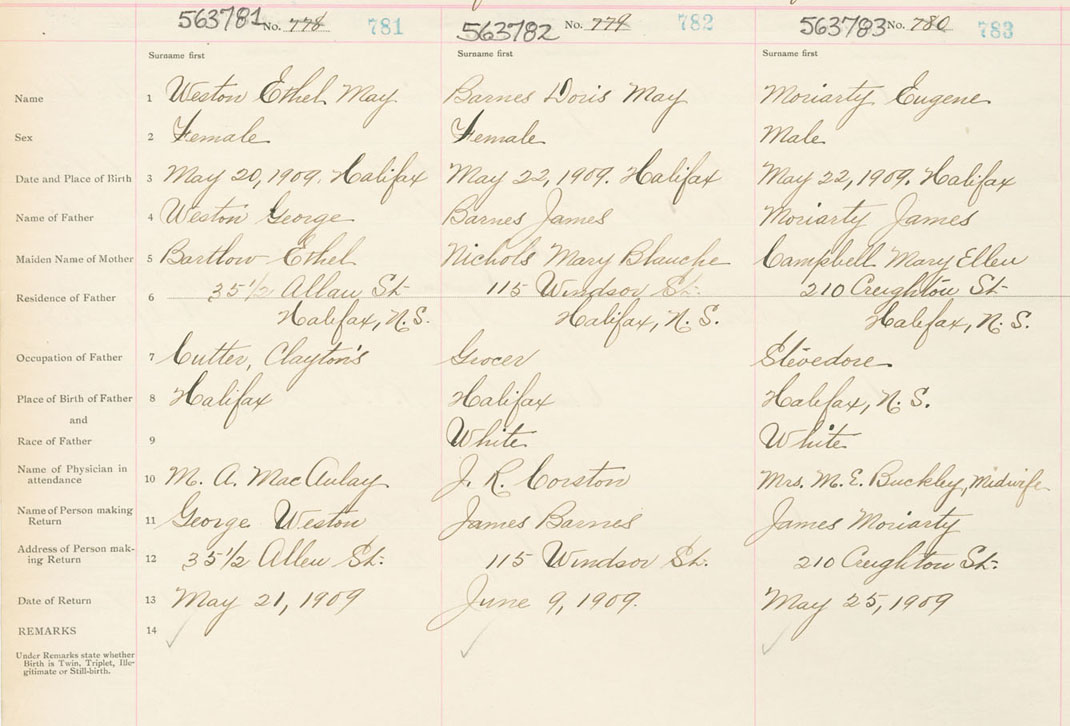 563781 No. 778 781 563782 No. 779 782 563783 No. 780 783
Surname first Surname first Surname first
Name 1 Weston Ethel May Barnes Doris May Moriarty Eugene
Sex 2 Female Female Male
Date and Place of Birth 3 May 20, 1909. Halifax May 22, 1909. Halifax May 22, 1909. Halifax
Name of Father 4 Weston George Barnes James Moriarty James
Maiden Name of Mother 5 Bartlow Ethel Nichols Mary Blanche Campbell Mary Ellen
Residence of Father 6 35 1/2 Allan St. 115 Windsor St. 210 Creighton St.
Halifax, N.S. Halifax, N.S. Halifax, N.S.
Occupation of Father 7 Cutter, Clayton's Grocer Stevedore
Place of Birth of Father 8 Halifax Halifax Halifax, N.S.
and
Race of Father 9 White White
Name of Physician in
attendance 10 M. A. MacAulay J. R. Corston Mrs. M. E. Buckley, Midwife
Name of Person making
Return 11 George Weston James Barnes James Moriarty
Address of Person mak-
ing Return 12 35 1/2 Allen St. 115 Windsor St. 210 Creighton St.
Date of Return 13 May 21, 1909 June 9, 1909. May 25, 1909
REMARKS 14
Under Remarks state whether
Birth is Twin, Triplet, Ille-
gitimate or Still-birth.